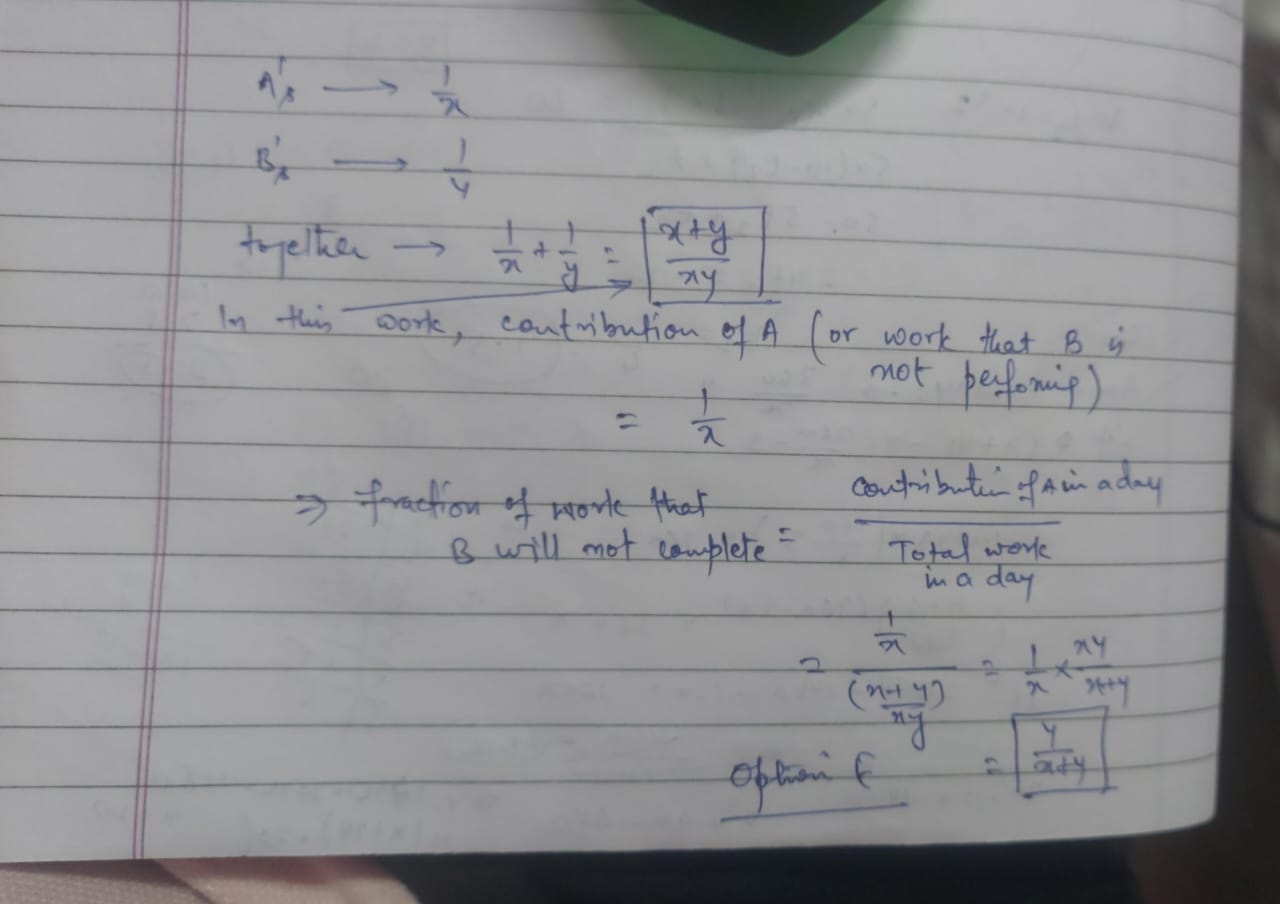 A's → 1/x
B's → 1/y
together → 1/x + 1/y = x+y/xy
In this work, contribution of A (or work that B is
not perfomig)
= 1/x
⇒ fraction of work that
B will not complete = contribution of A in a day / Total work in a day
= (1/x) / ((x+y)/xy) = 1/x × xy/x+y
Option E = y/x+y